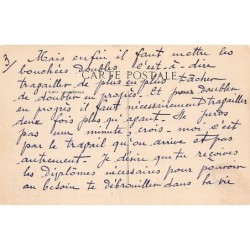 3/
Mais enfin il faut mettre les
bouchées doubles c'est-à-dire
CARTE POSTALE
travailler de plus en plus tâcher
de doubler en progrès. Et pour doubler
en progrès il faut nécessairement travailler
deux fois plus qu'avant. Ne perds
pas une minute ; crois-moi c'est
par le travail qu'on arrive et pas
autrement. Je désire que tu reçoives
les Diplômes nécessaires pour pouvoir
au besoin te débrouiller dans la vie